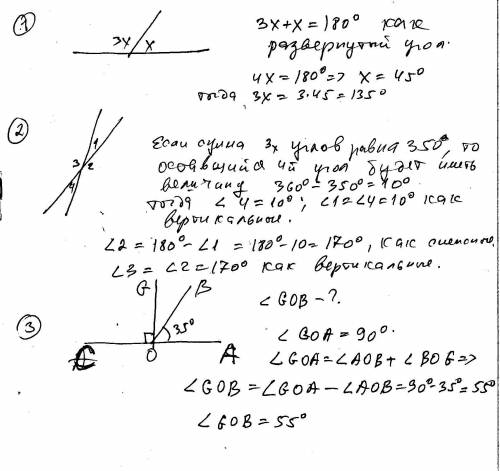 ①
3x x
3x + x = 180° как
развернутый угол.
4x = 180° => x = 45°
тогда 3x = 3·45 = 135°
②
1
3 2
4
Если сумма 3х углов равна 350°, то
4й угол будет иметь
величину 360° - 350° = 10°
тогда ∠4 = 10°; ∠1 = ∠4 = 10° как
вертикальные.
∠2 = 180° - ∠1 = 180° - 10 = 170°, как смежные.
∠3 = ∠2 = 170° как вертикальные.
③
G B
35°
C O A
∠GOB - ?
∠BOA = 90°.
∠GOA = ∠AOB + ∠BOG =>
∠GOB = ∠GOA - ∠AOB = 90° - 35° = 55°
∠GOB = 55°